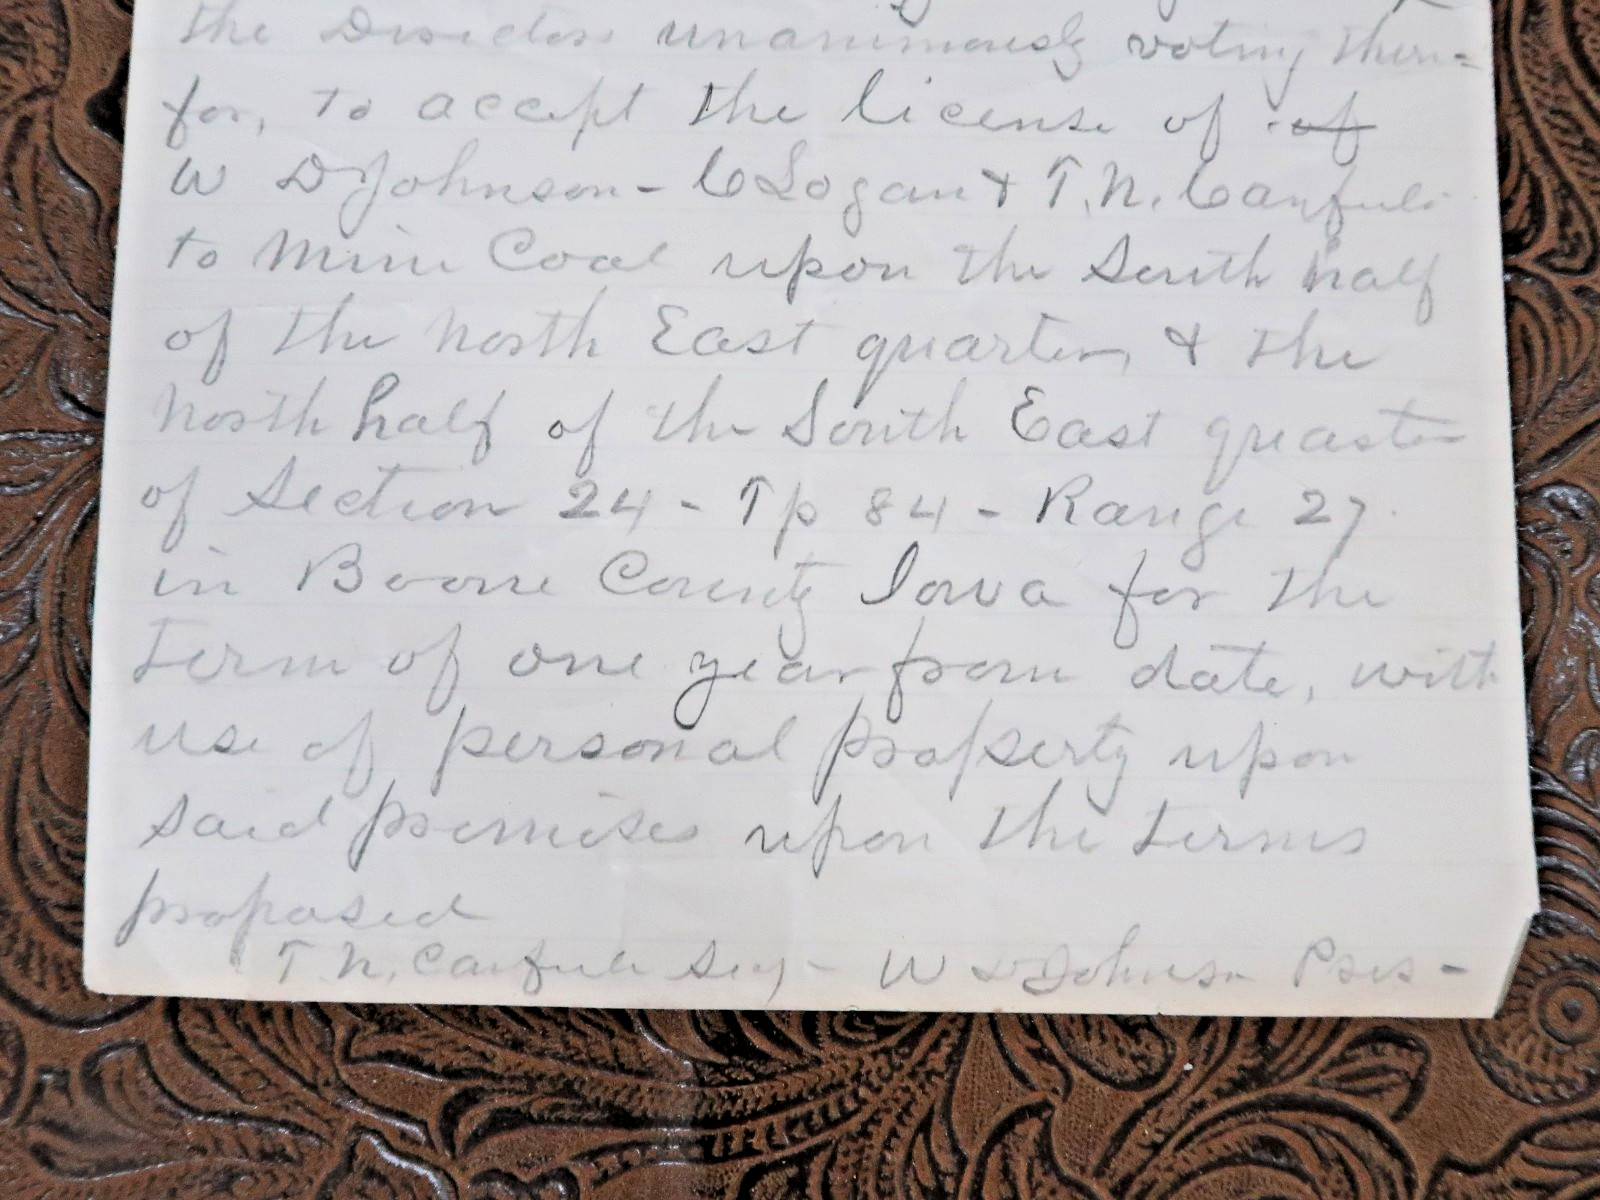 the Directors unanimously voting there=
for, to accept the license of of
W D Johnson - C Logan & T. N. Canfield
to Mine Coal upon the South half
of the North East quarter, & the
North half of the South East quarter
of Section 24 - Tp 84 - Range 27.
in Boone County Iowa for the
term of one year from date, with
use of personal property upon
said premises upon the terms
proposed
T. N. Canfield Secy - W D Johnson Pres -